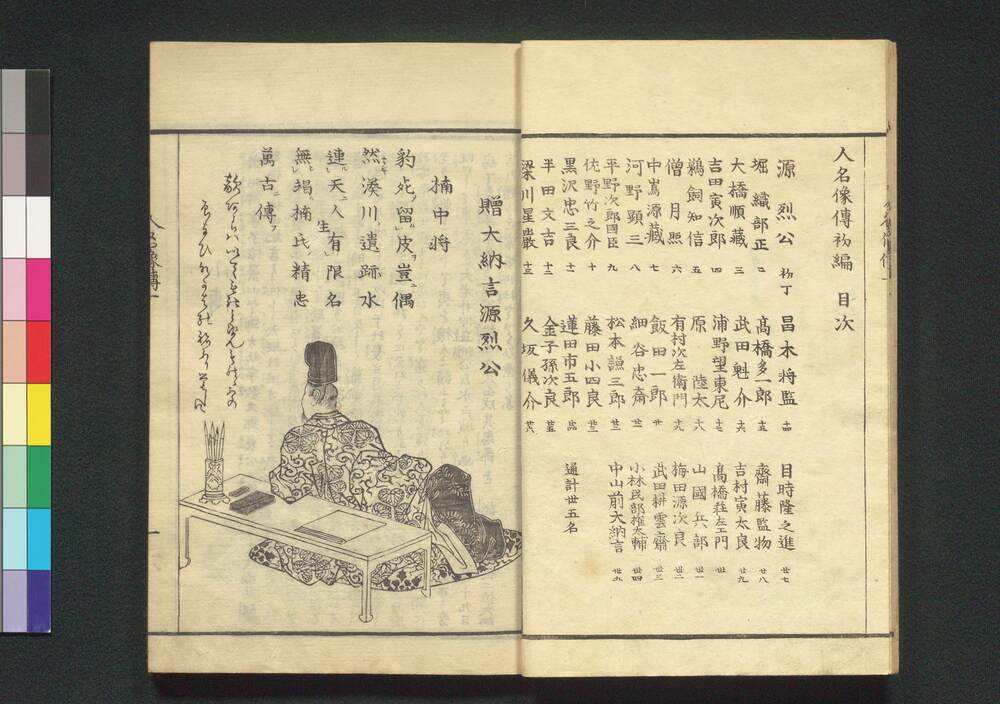 人名像傳初編 目次
源烈公 初丁
堀織部正 二
大橋順藏 三
吉田寅次郎 四
鵜飼知信 五
僧月照 六
中嶌源藏 七
河野顕三 八
平野次郎國臣 九
佐野竹之介 十
黒沢忠三良 十一
半田文吉 十二
梁川星巖 十三
昌木将監 十四
髙橋多一郎 十五
武田魁介 十六
浦野望東尼 十七
原陸太 十八
有村次左衛門 十九
飯田一郎 廿
細谷忠齋 廿一
松本謙三郎 廿二
藤田小四良 廿三
蓮田市五郎 廿四
金子孫次良 廿五
久坂儀介 廿六
目時隆之進 廿七
齋藤監物 廿八
吉村寅太良 廿九
髙橋荘左エ門 卅
山國兵部 卅一
梅田源次良 卅二
武田耕雲齋 卅三
小林民部権太輔 卅四
中山前大納言 卅五
通計卅五名
贈大納言源烈公
楠中将
豹死留皮豈偶
然湊川遺跡水
連天人生有限名
無竭楠氏精忠
萬古傳